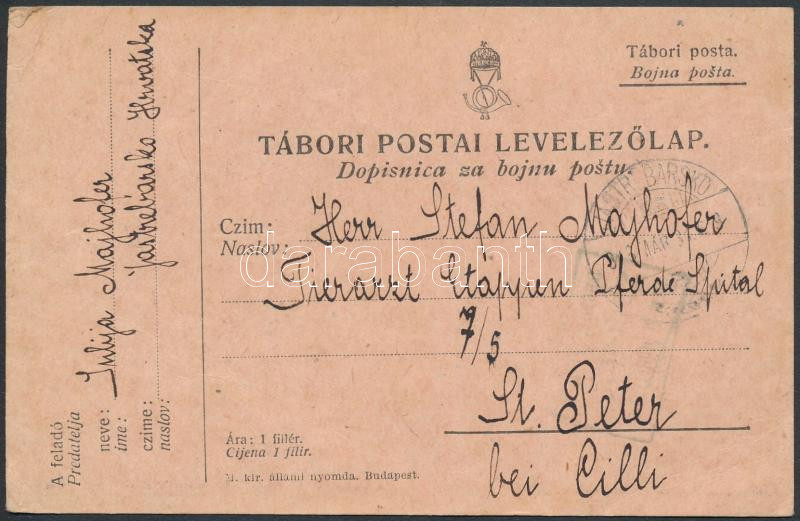 Tábori posta.
Bojna pošta.
TÁBORI POSTAI LEVELEZŐLAP.
Dopisnica za bojnu poštu.
Czim: Herr Stefan Majhofer
Naslov:
Tierarzt Etappen Pferde Spital
7/5
St. Peter
bei Cilli
Ára: 1 fillér.
Cijena 1 filir.
M. kir. állami nyomda. Budapest.
A feladó
Predatelja
neve: Julija Majhofer
ime:
czime: Jastrebarsko Hrvatska
naslov:
darabanth